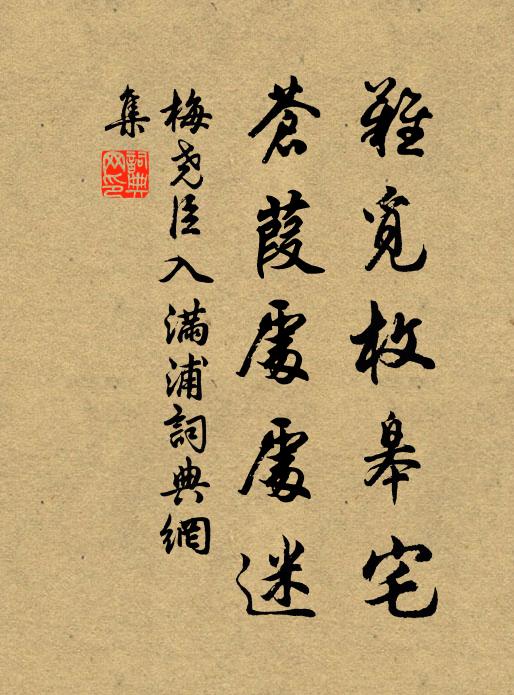 難覓枚皋宅
蒼葭處處迷
梅堯臣入滿浦詞典網
集
詞典網印